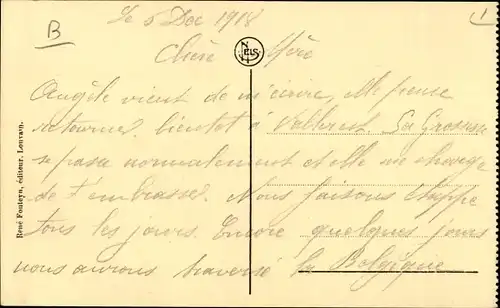 B
Le 5 Dec 1918
1
Chère Mère
NELS
Angèle vient de m'écrire, elle pense
retourner bientôt à Sa Grossesse
se passe normalement et elle me charge
de t'embrasser. Nous faisons étappe
tous les jours. Encore quelques jours
nous aurons traversé la Belgique
René Fonteyn, éditeur, Louvain.